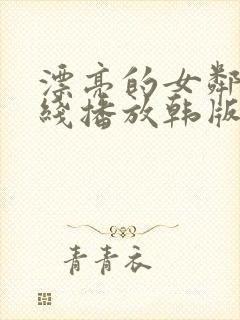 漂亮的女鄰
綫播放韩版
青青衣